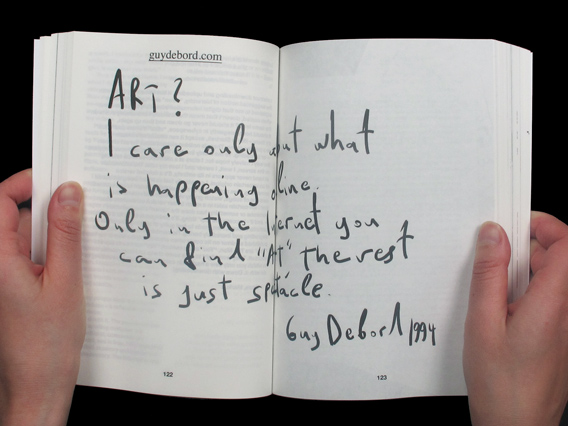 guydebord.com
ART?
I care only what
is happening
Only in the you
can find "Art" the rest
is just spectacle.
Guy Debord 1994
122
123